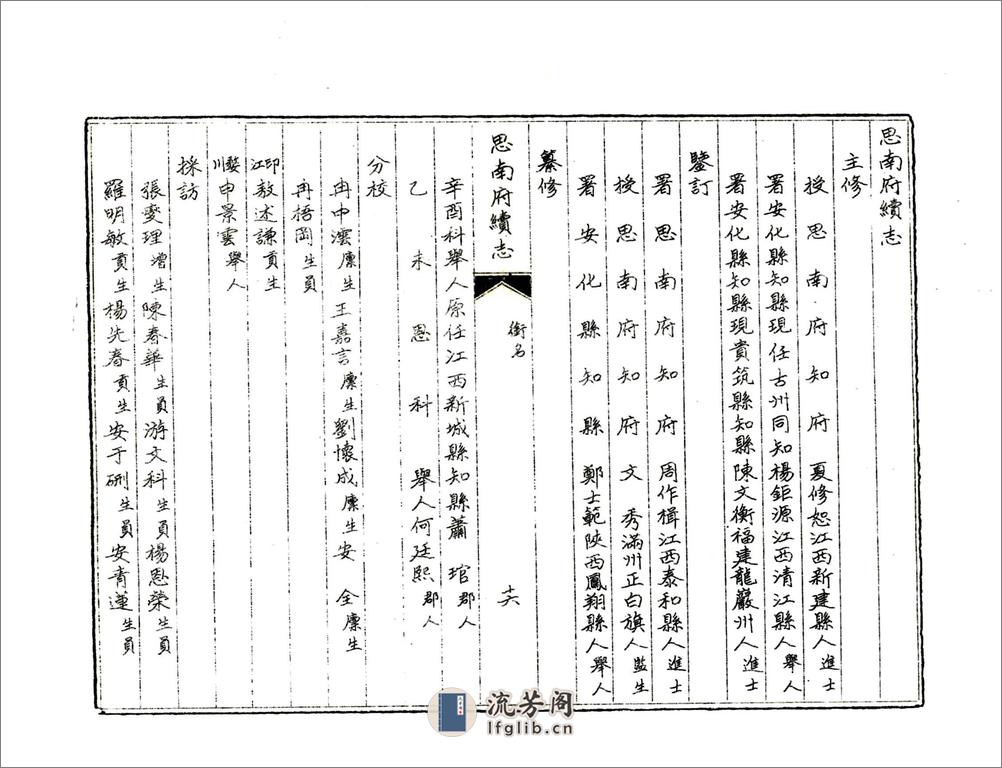 思南府續志
主修
授思南府知府夏修恕江西新建縣人進士
署安化縣知縣現任古州同知楊鉅源江西清江縣人舉人
署安化縣知縣現貴筑縣知縣陳文衡福建龍巖州人進士
鑒訂
署思南府知府周作楫江西泰和縣人進士
授思南府知府文秀滿州正白旗人監生
署安化縣知縣鄭士範陝西鳳翔縣人舉人
纂修
思南府續志 銜名 十六
辛酉科舉人原任江西新城縣知縣蕭琯郡人
乙未恩科舉人何廷熙郡人
分校
冉中澐廩生王嘉言廩生劉懷成廩生安全廩生
冉梧岡生員
印江敖述謙貢生
婺川申景雲舉人
採訪
張燮理增生陳春華生員游文科生員楊恩榮生員
羅明敏貢生楊先春貢生安于硎生員安青蓮生員
流芳阁
lfglib.cn